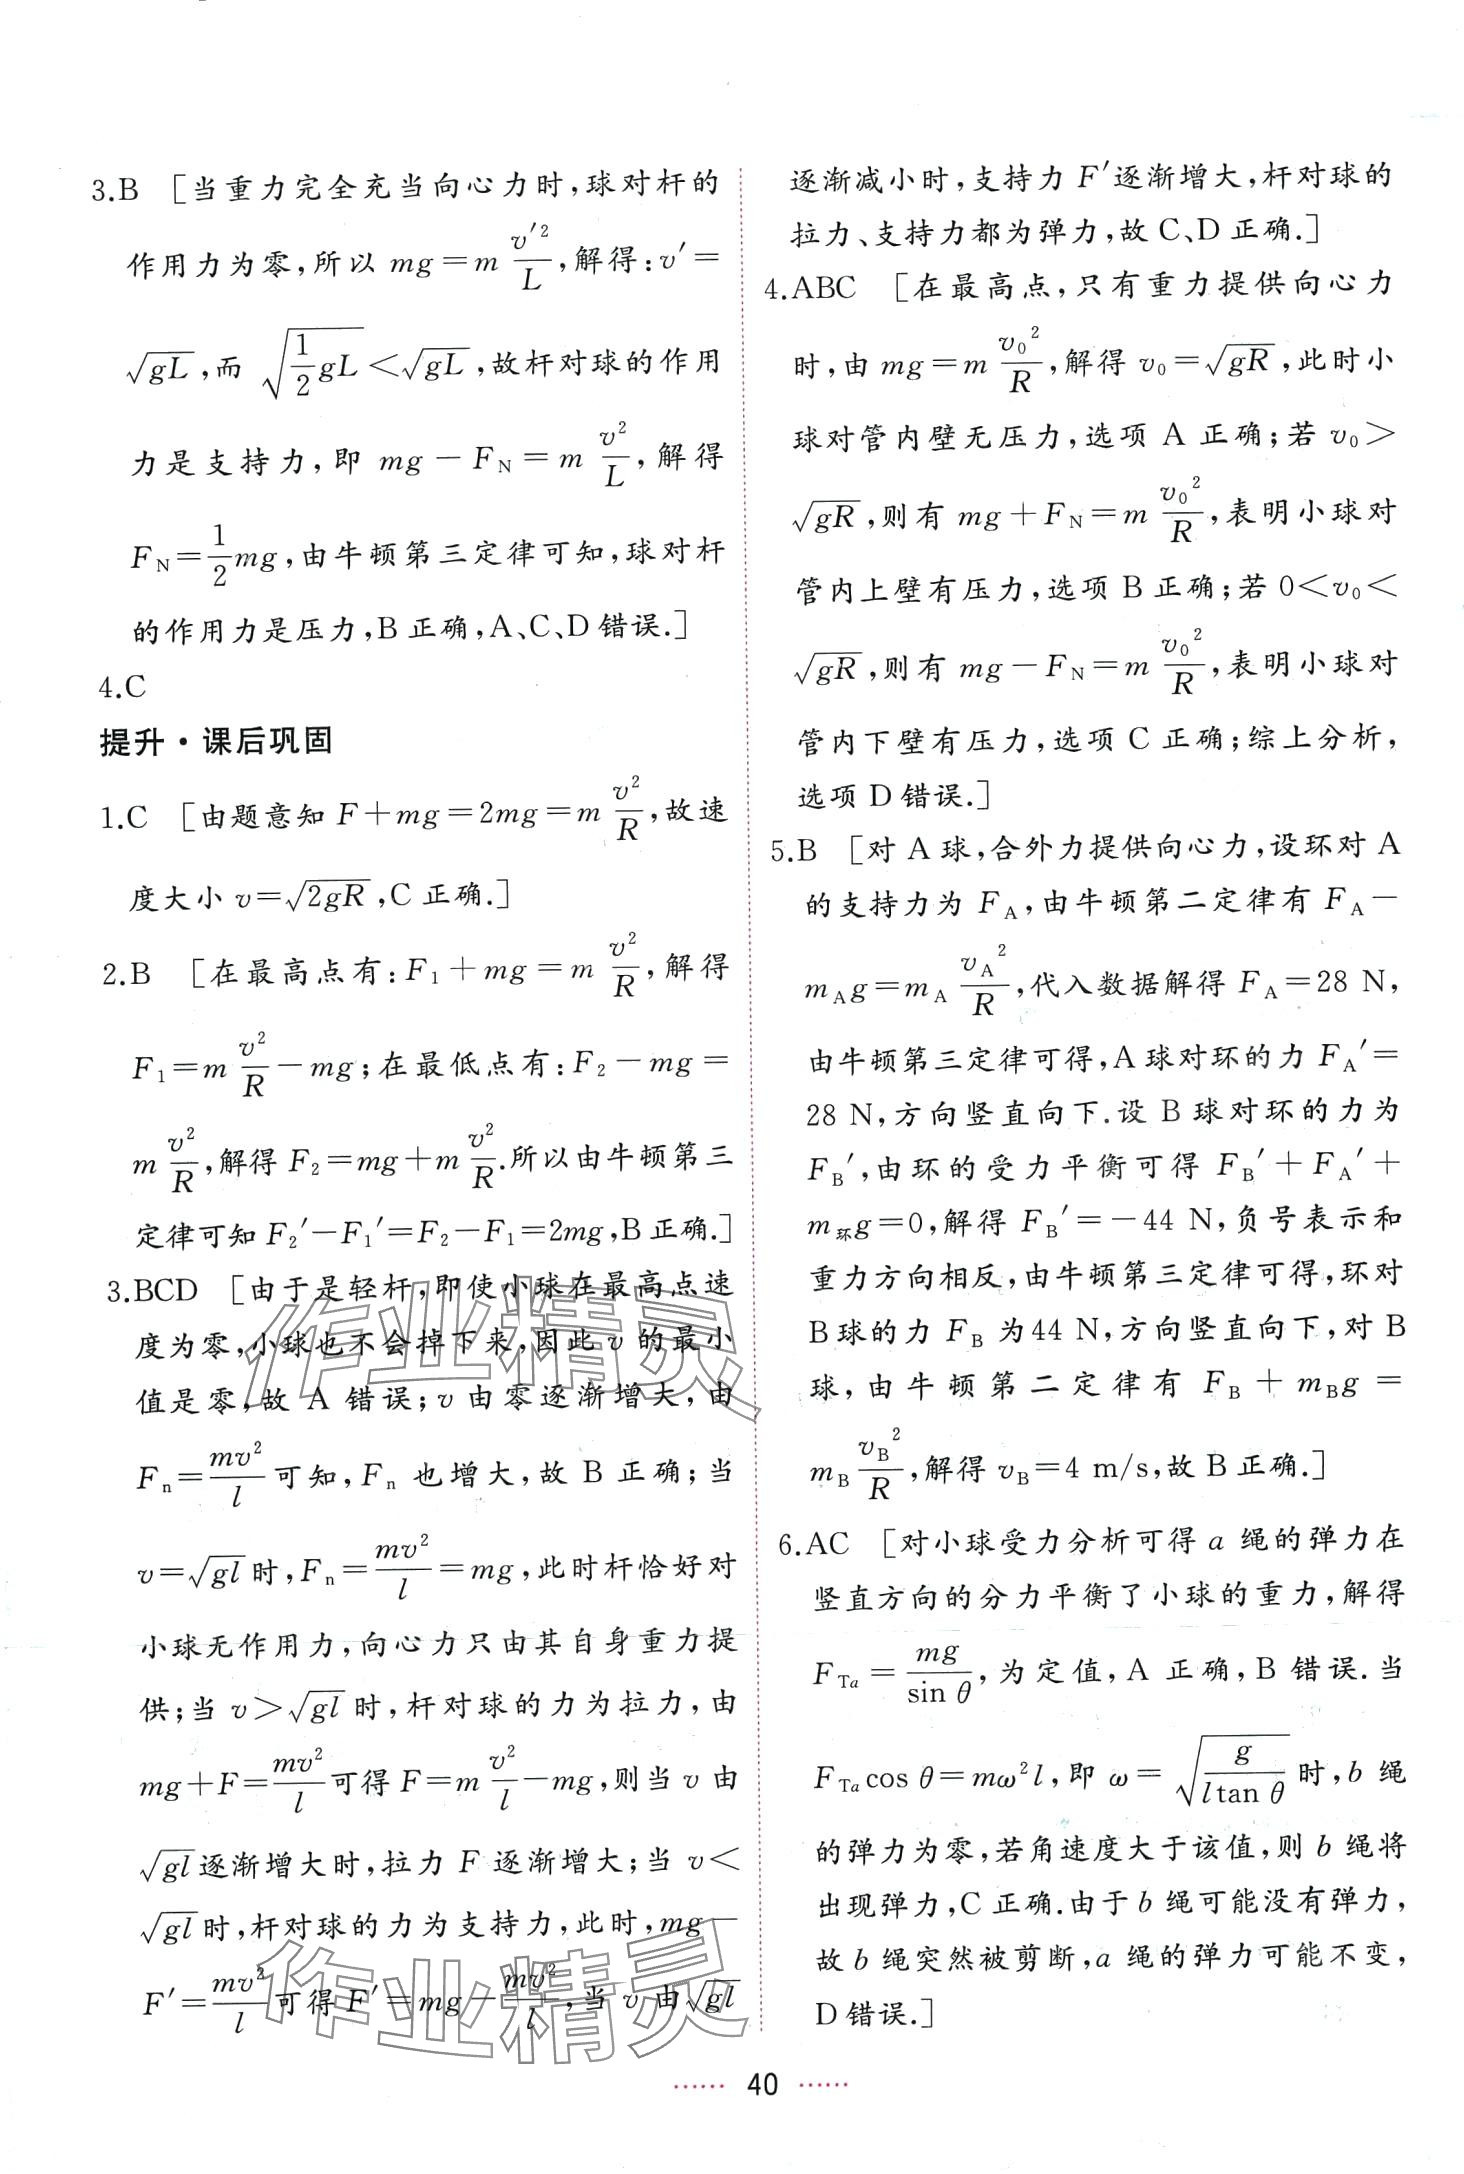 3.B [当重力完全充当向心力时,球对杆的
作用力为零,所以 mg=m v′²/L,解得:v′=
√gL,而 √(1/2 gL)<√gL,故杆对球的作用
力是支持力,即 mg-F_N=m v²/L,解得
F_N=1/2 mg,由牛顿第三定律可知,球对杆
的作用力是压力,B 正确,A、C、D 错误.]
4.C
提升·课后巩固
1.C [由题意知 F+mg=2mg=m v²/R,故速
度大小 v=√2gR,C 正确.]
2.B [在最高点有:F₁+mg=m v²/R,解得
F₁=m v²/R-mg;在最低点有:F₂-mg=
m v²/R,解得 F₂=mg+m v²/R.所以由牛顿第三
定律可知 F₂′-F₁′=F₂-F₁=2mg,B 正确.]
3.BCD [由于是轻杆,即使小球在最高点速
度为零,小球也不会掉下来,因此 v 的最小
值是零,故 A 错误;v 由零逐渐增大,由
F_n=mv²/l 可知,F_n 也增大,故 B 正确;当
v=√gl 时,F_n=mv²/l=mg,此时杆恰好对
小球无作用力,向心力只由其自身重力提
供;当 v>√gl 时,杆对球的力为拉力,由
mg+F=mv²/l 可得 F=m v²/l-mg,则当 v 由
√gl 逐渐增大时,拉力 F 逐渐增大;当 v<
√gl 时,杆对球的力为支持力,此时,mg-
F′=mv²/l 可得 F′=mg-mv²/l,当 v 由 √gl
逐渐减小时,支持力 F′逐渐增大,杆对球的
拉力、支持力都为弹力,故 C、D 正确.]
4.ABC [在最高点,只有重力提供向心力
时,由 mg=m v₀²/R,解得 v₀=√gR,此时小
球对管内壁无压力,选项 A 正确;若 v₀>
√gR,则有 mg+F_N=m v₀²/R,表明小球对
管内上壁有压力,选项 B 正确;若 0<v₀<
√gR,则有 mg-F_N=m v₀²/R,表明小球对
管内下壁有压力,选项 C 正确;综上分析,
选项 D 错误.]
5.B [对 A 球,合外力提供向心力,设环对 A
的支持力为 F_A,由牛顿第二定律有 F_A-
m_A g=m_A v_A²/R,代入数据解得 F_A=28 N,
由牛顿第三定律可得,A 球对环的力 F_A′=
28 N,方向竖直向下.设 B 球对环的力为
F_B′,由环的受力平衡可得 F_B′+F_A′+
m_环 g=0,解得 F_B′=-44 N,负号表示和
重力方向相反,由牛顿第三定律可得,环对
B 球的力 F_B 为 44 N,方向竖直向下,对 B
球,由牛顿第二定律有 F_B+m_B g=
m_B v_B²/R,解得 v_B=4 m/s,故 B 正确.]
6.AC [对小球受力分析可得 a 绳的弹力在
竖直方向的分力平衡了小球的重力,解得
F_Ta=mg/sin θ,为定值,A 正确,B 错误.当
F_Ta cos θ=mω²l,即 ω=√(g/(l tan θ)) 时,b 绳
的弹力为零,若角速度大于该值,则 b 绳将
出现弹力,C 正确.由于 b 绳可能没有弹力,
故 b 绳突然被剪断,a 绳的弹力可能不变,
D 错误.]
作业精灵
作业精灵
…… 40 ……